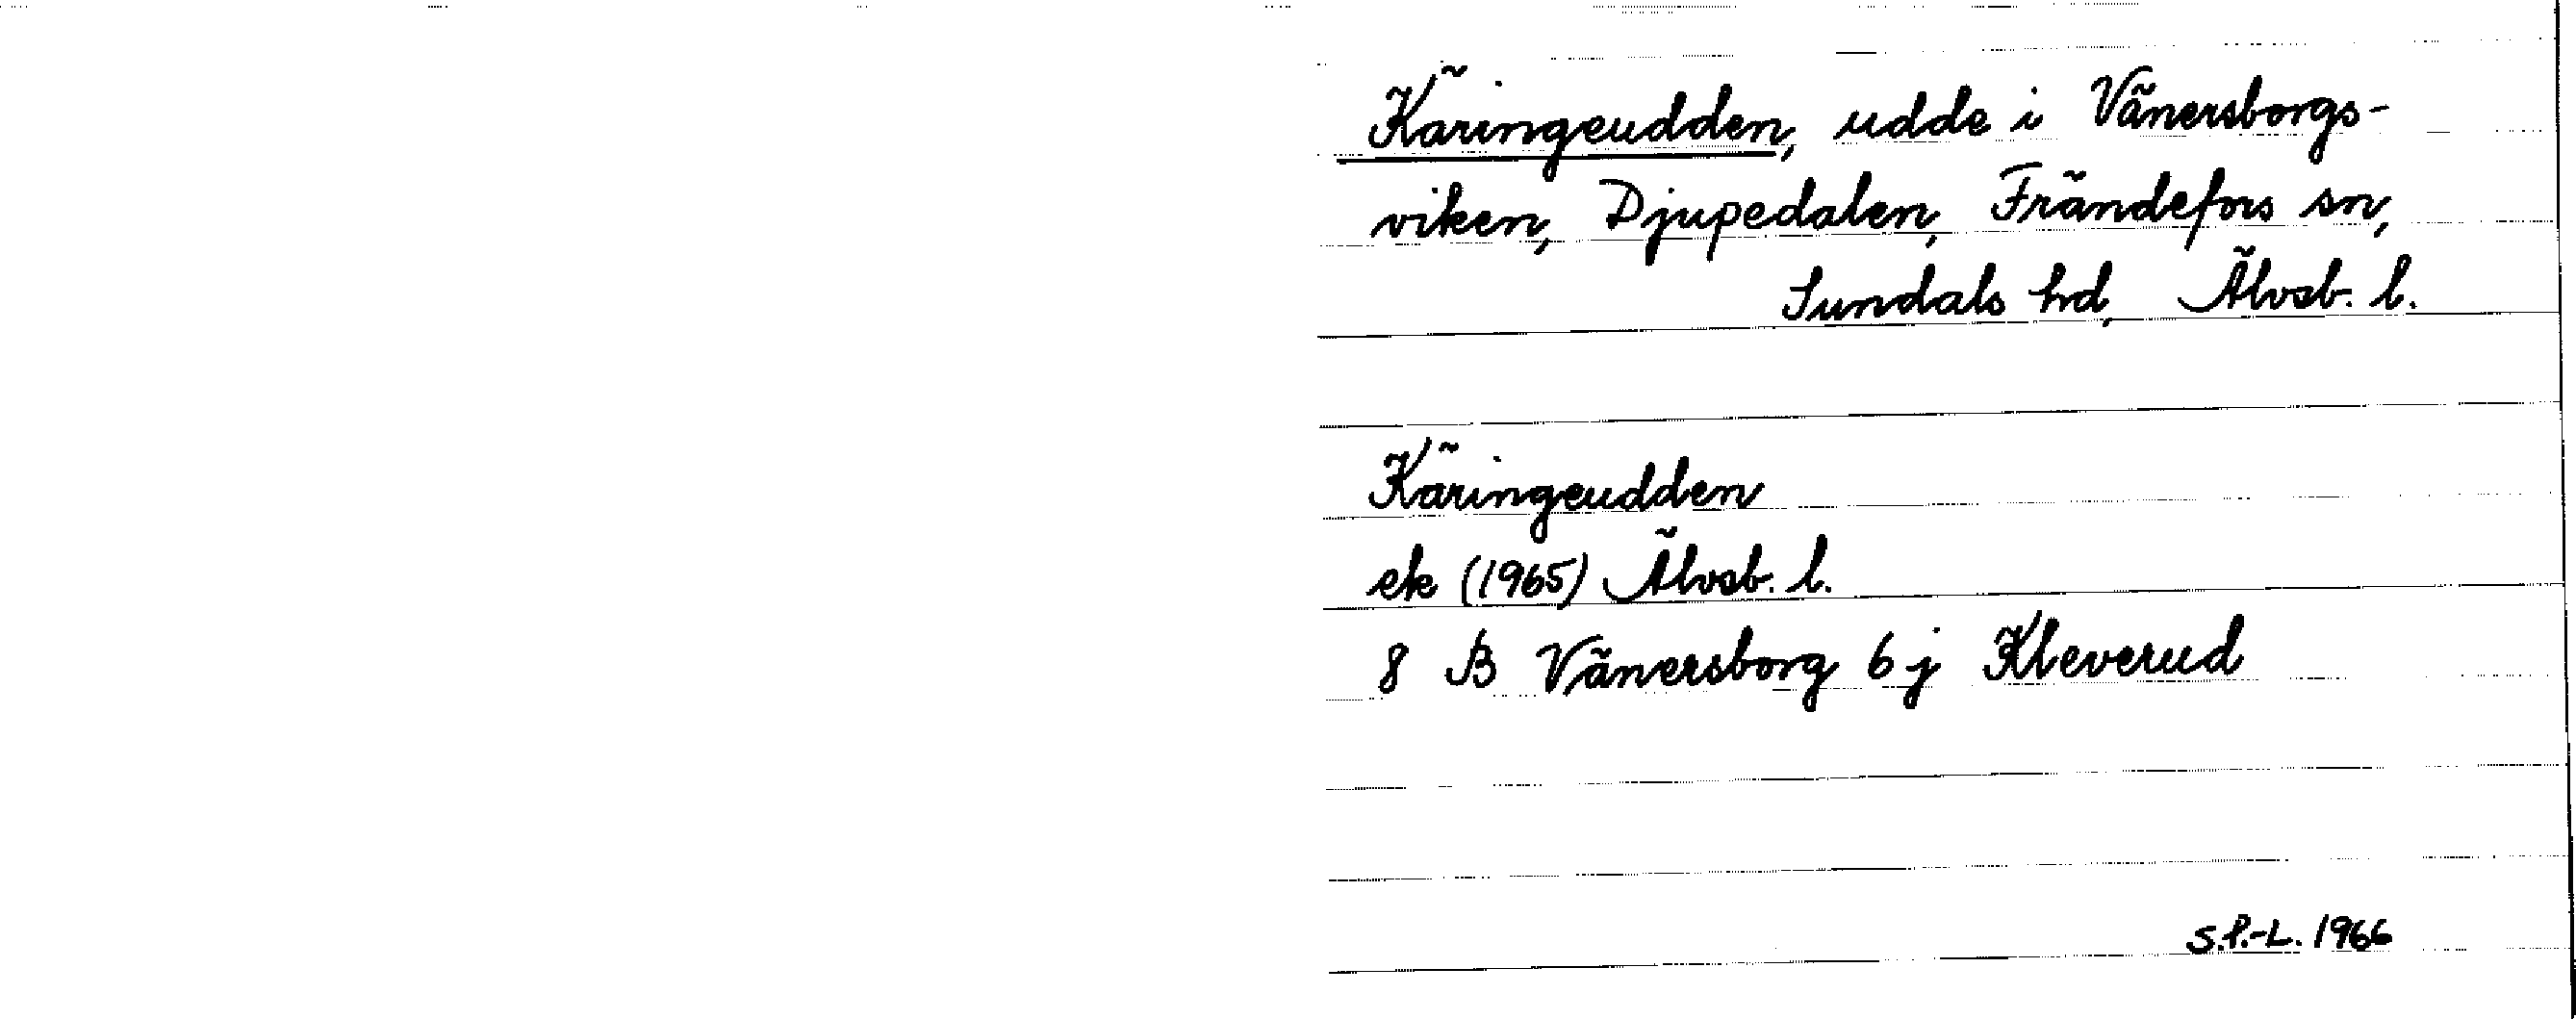 Käringeudden, udde i Vänersborgs-
viken, Djupedalen, Frändefors sn,
Sundals hd, Älvsb. l.
Käringeudden
ek (1965) Älvsb. l.
8 B Vänersborg 6 j Kleverud
S.P.-L. 1966